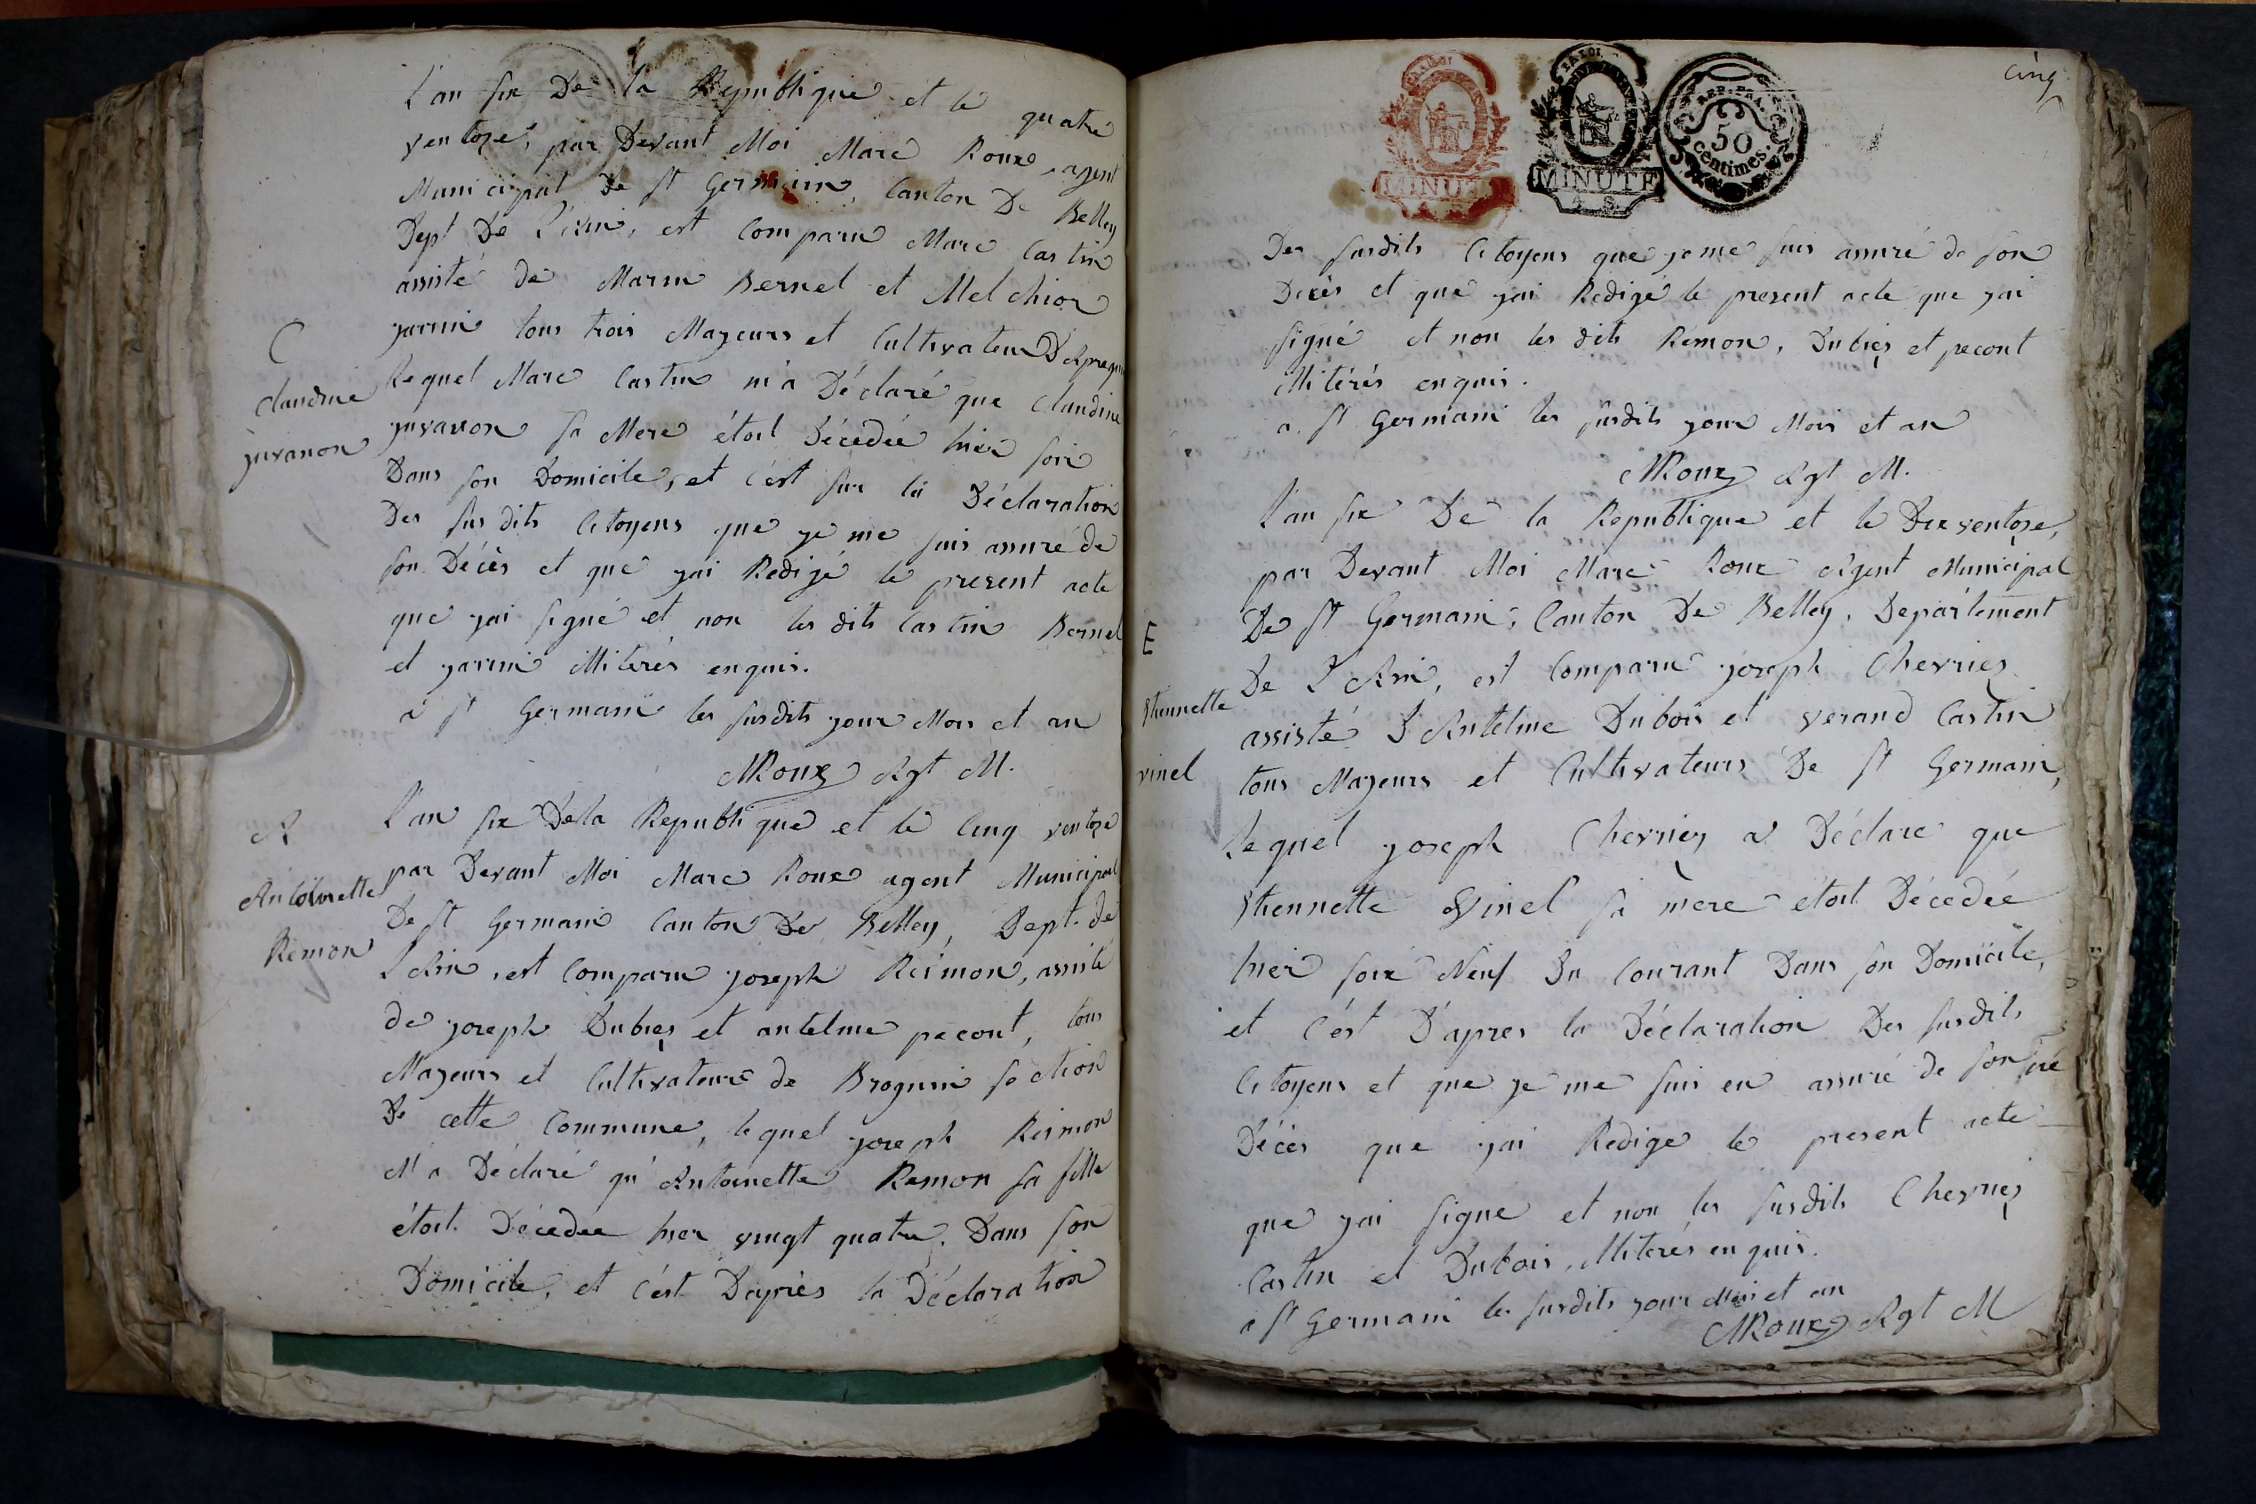 L'an six De la Republique et le quatre
ventose, par Devant Moi Marc Roux, agent
Municipal de St Germain, Canton De Belley
Dept De L'ain, est Comparu Marc Castin
assisté de Marin Bernel et Melchior
jarrin tous trois Majeurs et Cultivateur
C
Claudine
juvanon
Lequel Marc Castin m'a Déclaré que Claudine
juvanon sa Mere étoit Décedée hier soir
Dans son Domicile, et c'est sur la Déclaration
Des sus dits Citoyens que je me suis assuré de
son Décès et que jai Redigé le present acte
que jai signé et non les dits Castin Bernel
et jarrin Illiterés enquis.
a St Germain les susdits jour Mois et an
MRoux Agt M.
A
Antoinette
Remon
L'an six De la Republique et le Cinq ventose
par Devant Moi Marc Roux agent Municipal
De St Germain Canton De Belley, Dept. de
L'Ain, est Comparu joseph Reimon, assisté
de joseph Dubies et antelme pecont, tous
Majeurs et Cultivateurs de Brognin section
De cette Commune, lequel joseph Reimon
M'a Déclaré qu'Antoinette Remon sa fille
étoit Décedee hier vingt quatre. Dans son
Domicile, et c'est D'après la Déclaration
cinq
PAR LOI
MINUTE
A S
MINUTE
A S
REP. FRA.
50
centimes.
Des susdits Citoyens que je me suis assuré de son
Décès et que jai Redigé le present acte que jai
signé et non les dits Rémon, Dubies et pecont
Illitérés enquis.
a St Germain les susdits jour Mois et an
MRoux Agt M.
E
Stiennette
vinel
L'an six De la Republique et le Dix ventose,
par Devant Moi Marc Roux Agent Municipal
De St Germain, Canton De Belley, Departement
De L'Ain, est Comparu joseph Chevrier
assisté D'Antelme Dubois et verand Castin
tous Majeurs et Cultivateurs De St Germain,
Lequel joseph Chevrier a Déclaré que
Stiennette vinel sa mere étoit Décedée
hier soir Neuf Du Courant Dans son Domicile,
et C'est D'apres la Déclaration Des susdits
Citoyens et que je me suis en assuré de son
Décès que jai Redigé le present acte
que jai signé et non les susdits Chevrier
Castin et Dubois, Illiterés enquis.
a St Germain les susdits jour Mois et an
MRoux Agt M